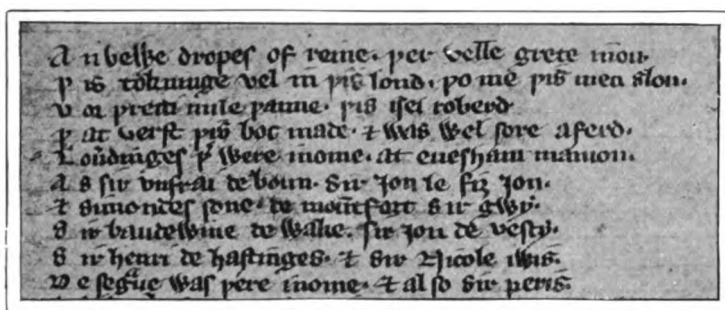 A n velwe dropes of reine· þer velle grete inou·
þ is tokninge vel in þis lond· þo me þis men slou·
v or þretti mile þanne· þis isei roberd·
þ at verst þis boc made· ⁊ was wel sore aferd·
L ou̅dinges þ̓ were inome· at euesham manion·
A s sir vnfrai de boun· sir Jon le fiz Jon·
⁊ simondes sone· de mou̅tfort sir gwy·
s ir baudewine de wake· sir jon de vescy·
s ir henri de hastinges· ⁊ sir Nicole iwis·
D e segᵃue was þere inome· ⁊ al so sir peris·